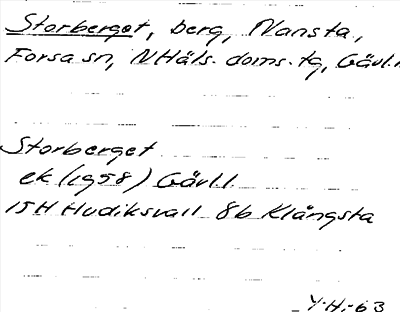 Storberget, berg, Nansta,
Forsa sn, NHäls. doms. tg, Gävl.l
Storberget
ek (1958) Gävl.l.
15H Hudiksvall 8b Klångsta
Y.H.-63